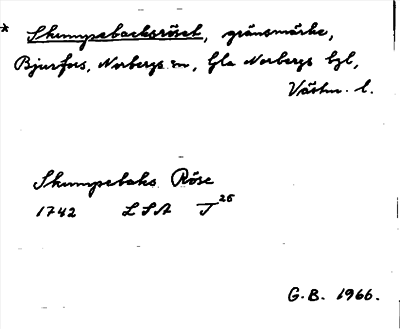 * Skumpebacksröset, gränsmärke,
Bjurfors, Norbergs sn, Gla Norbergs bgl,
Västm. l.
Skumpebaks Röse
1742 LSA T 26
G.B. 1966.